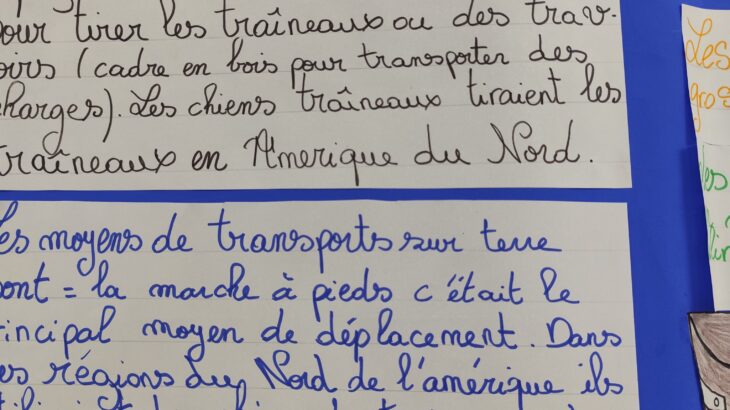 pour tirer les traîneaux ou des trav-
oirs (cadre en bois pour transporter des
charges). Les chiens traîneaux tiraient les
traîneaux en Amerique du Nord.
Les moyens de transports sur terre
sont = la marche à pieds c'était le
principal moyen de déplacement. Dans
les régions du Nord de l'amérique ils
Les
gros
les